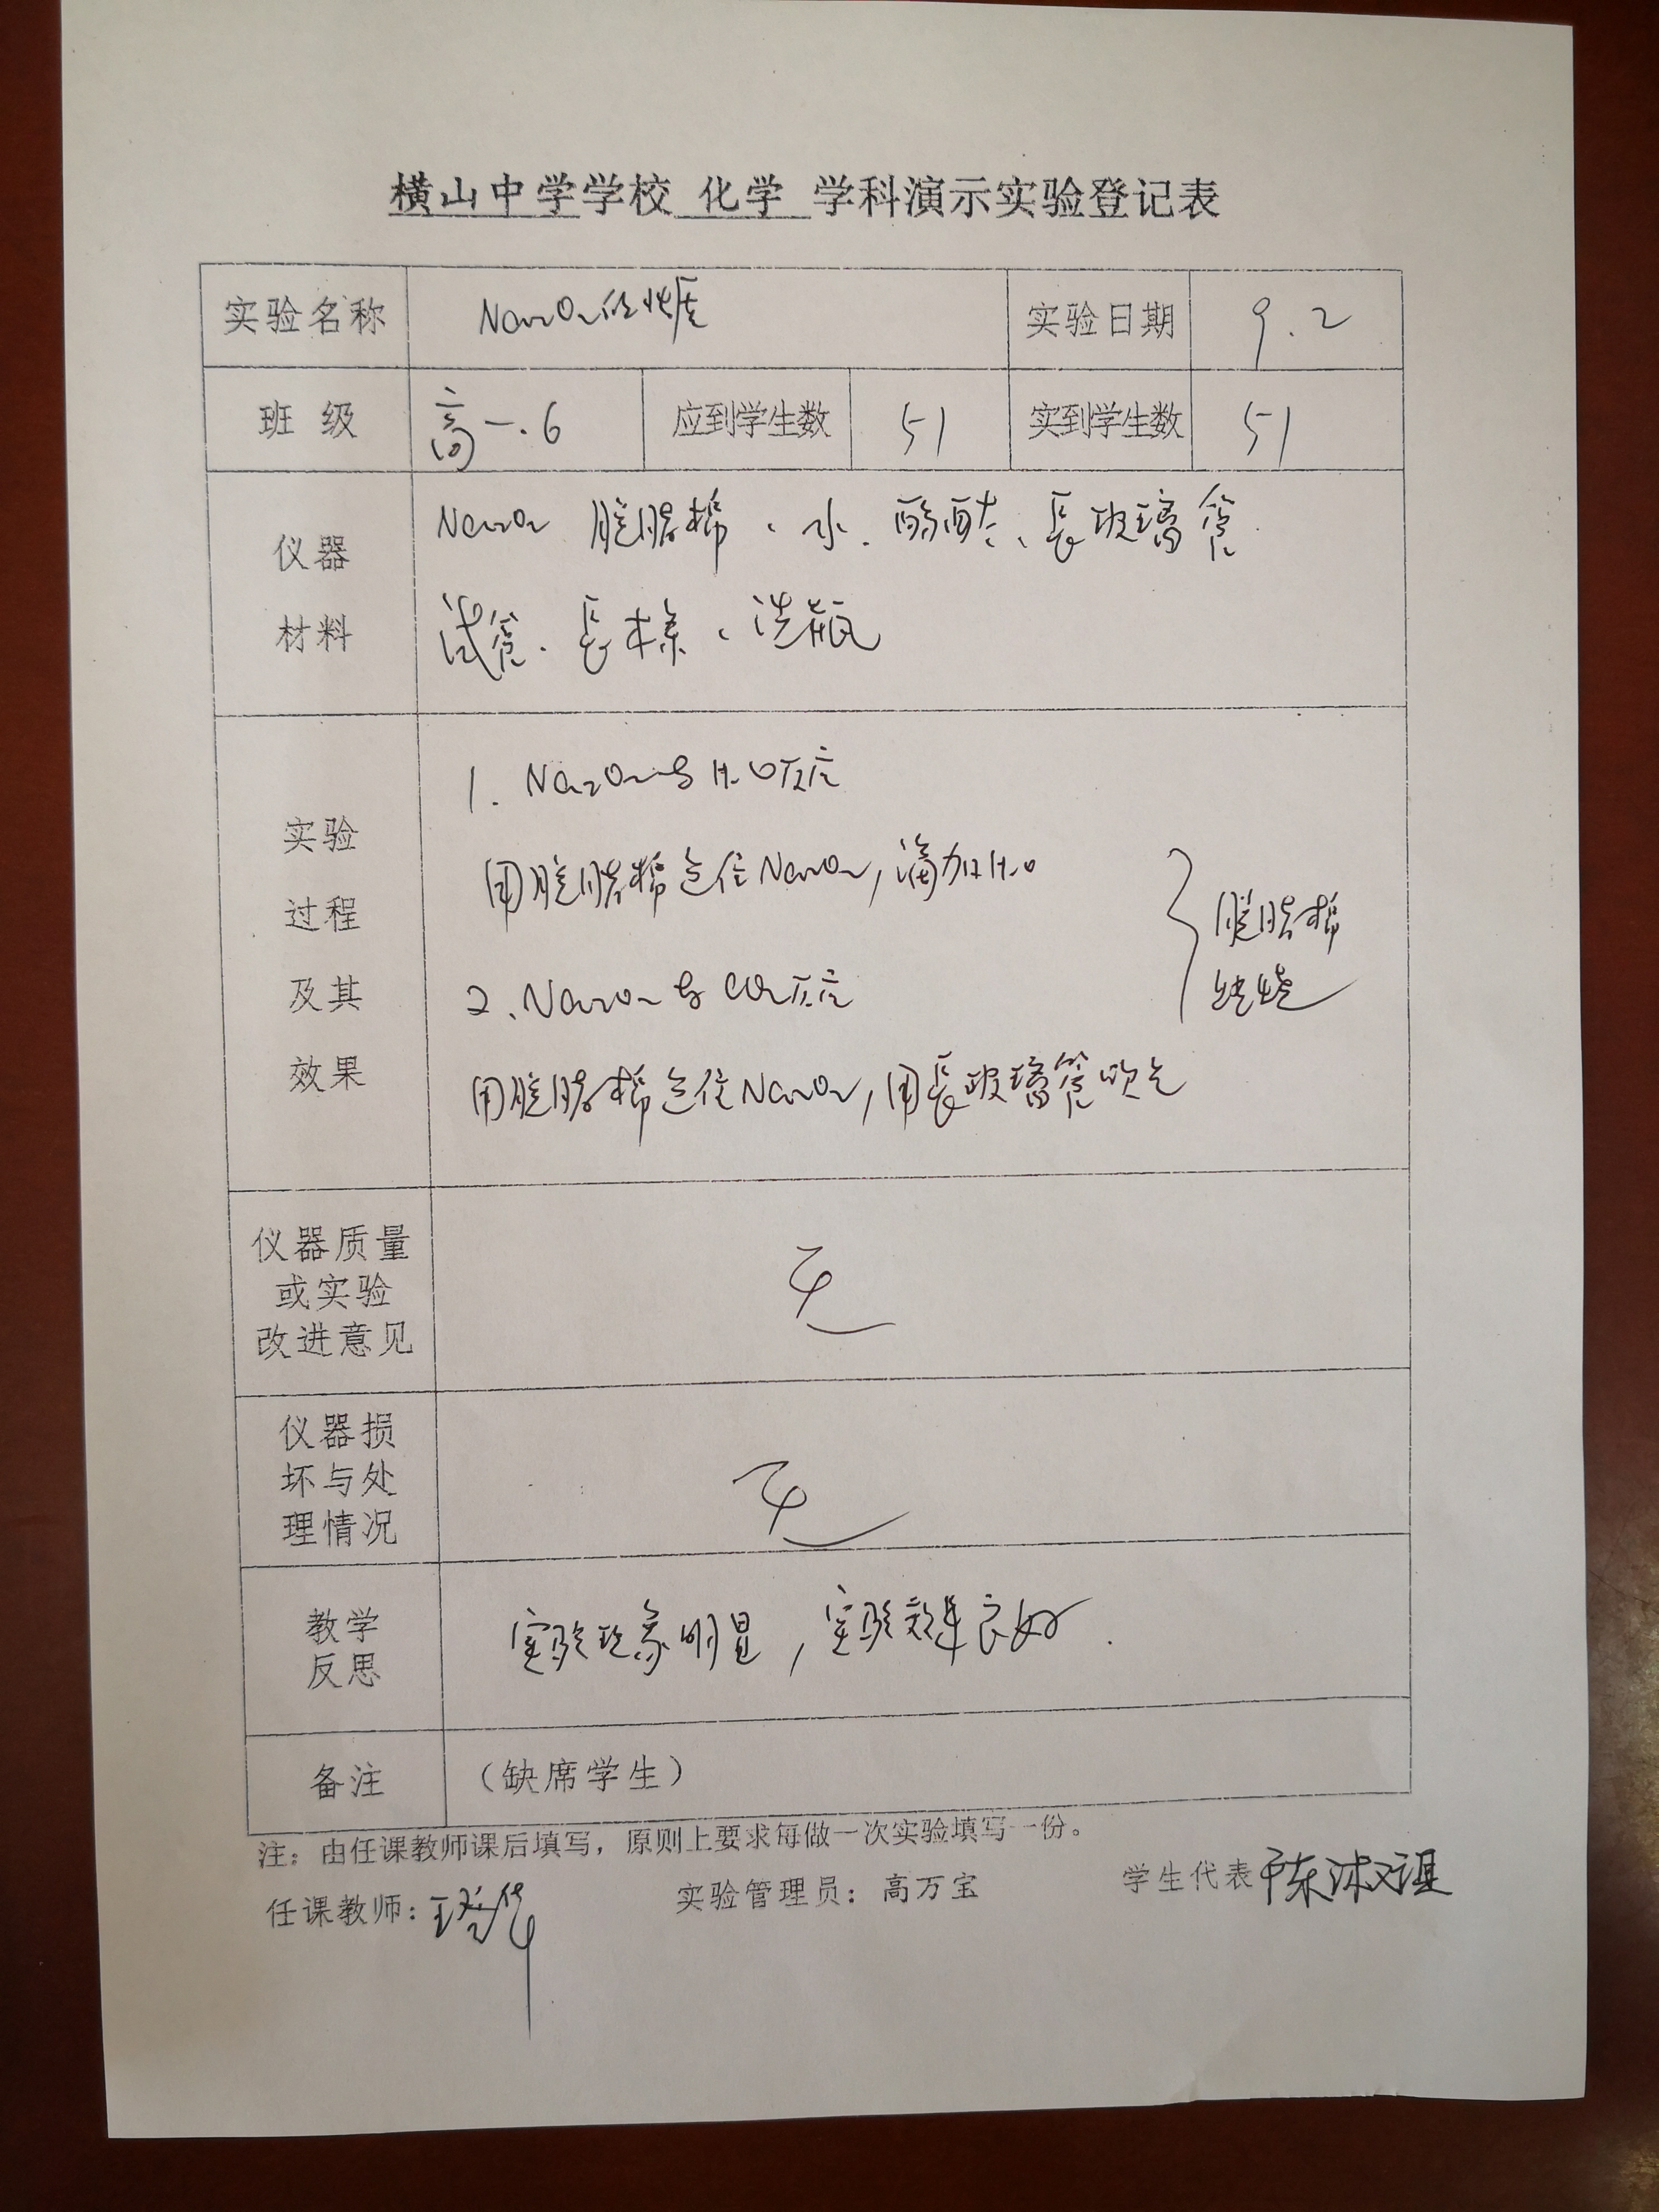 横山中学学校 化学 学科演示实验登记表
实验名称 Na2O2的性质 实验日期 9.2
班 级 高一.6 应到学生数 51 实到学生数 51
仪器 材料
Na2O2 脱脂棉、水、酚酞、長玻璃管
试管、長木条、洗瓶
实验 过程 及其 效果
1. Na2O2与H2O反应
用脱脂棉包住Na2O2,滴加H2O
2、Na2O2与CO2反应
用脱脂棉包住Na2O2,用長玻璃管吹气
} 脱脂棉
燃烧
仪器质量
或实验
改进意见
无
仪器损
坏与处
理情况
无
教学
反思
实验现象明显,实验效果良好.
备注 (缺席学生)
注:由任课教师课后填写,原则上要求每做一次实验填写一份。
任课教师: 实验管理员:高万宝 学生代表